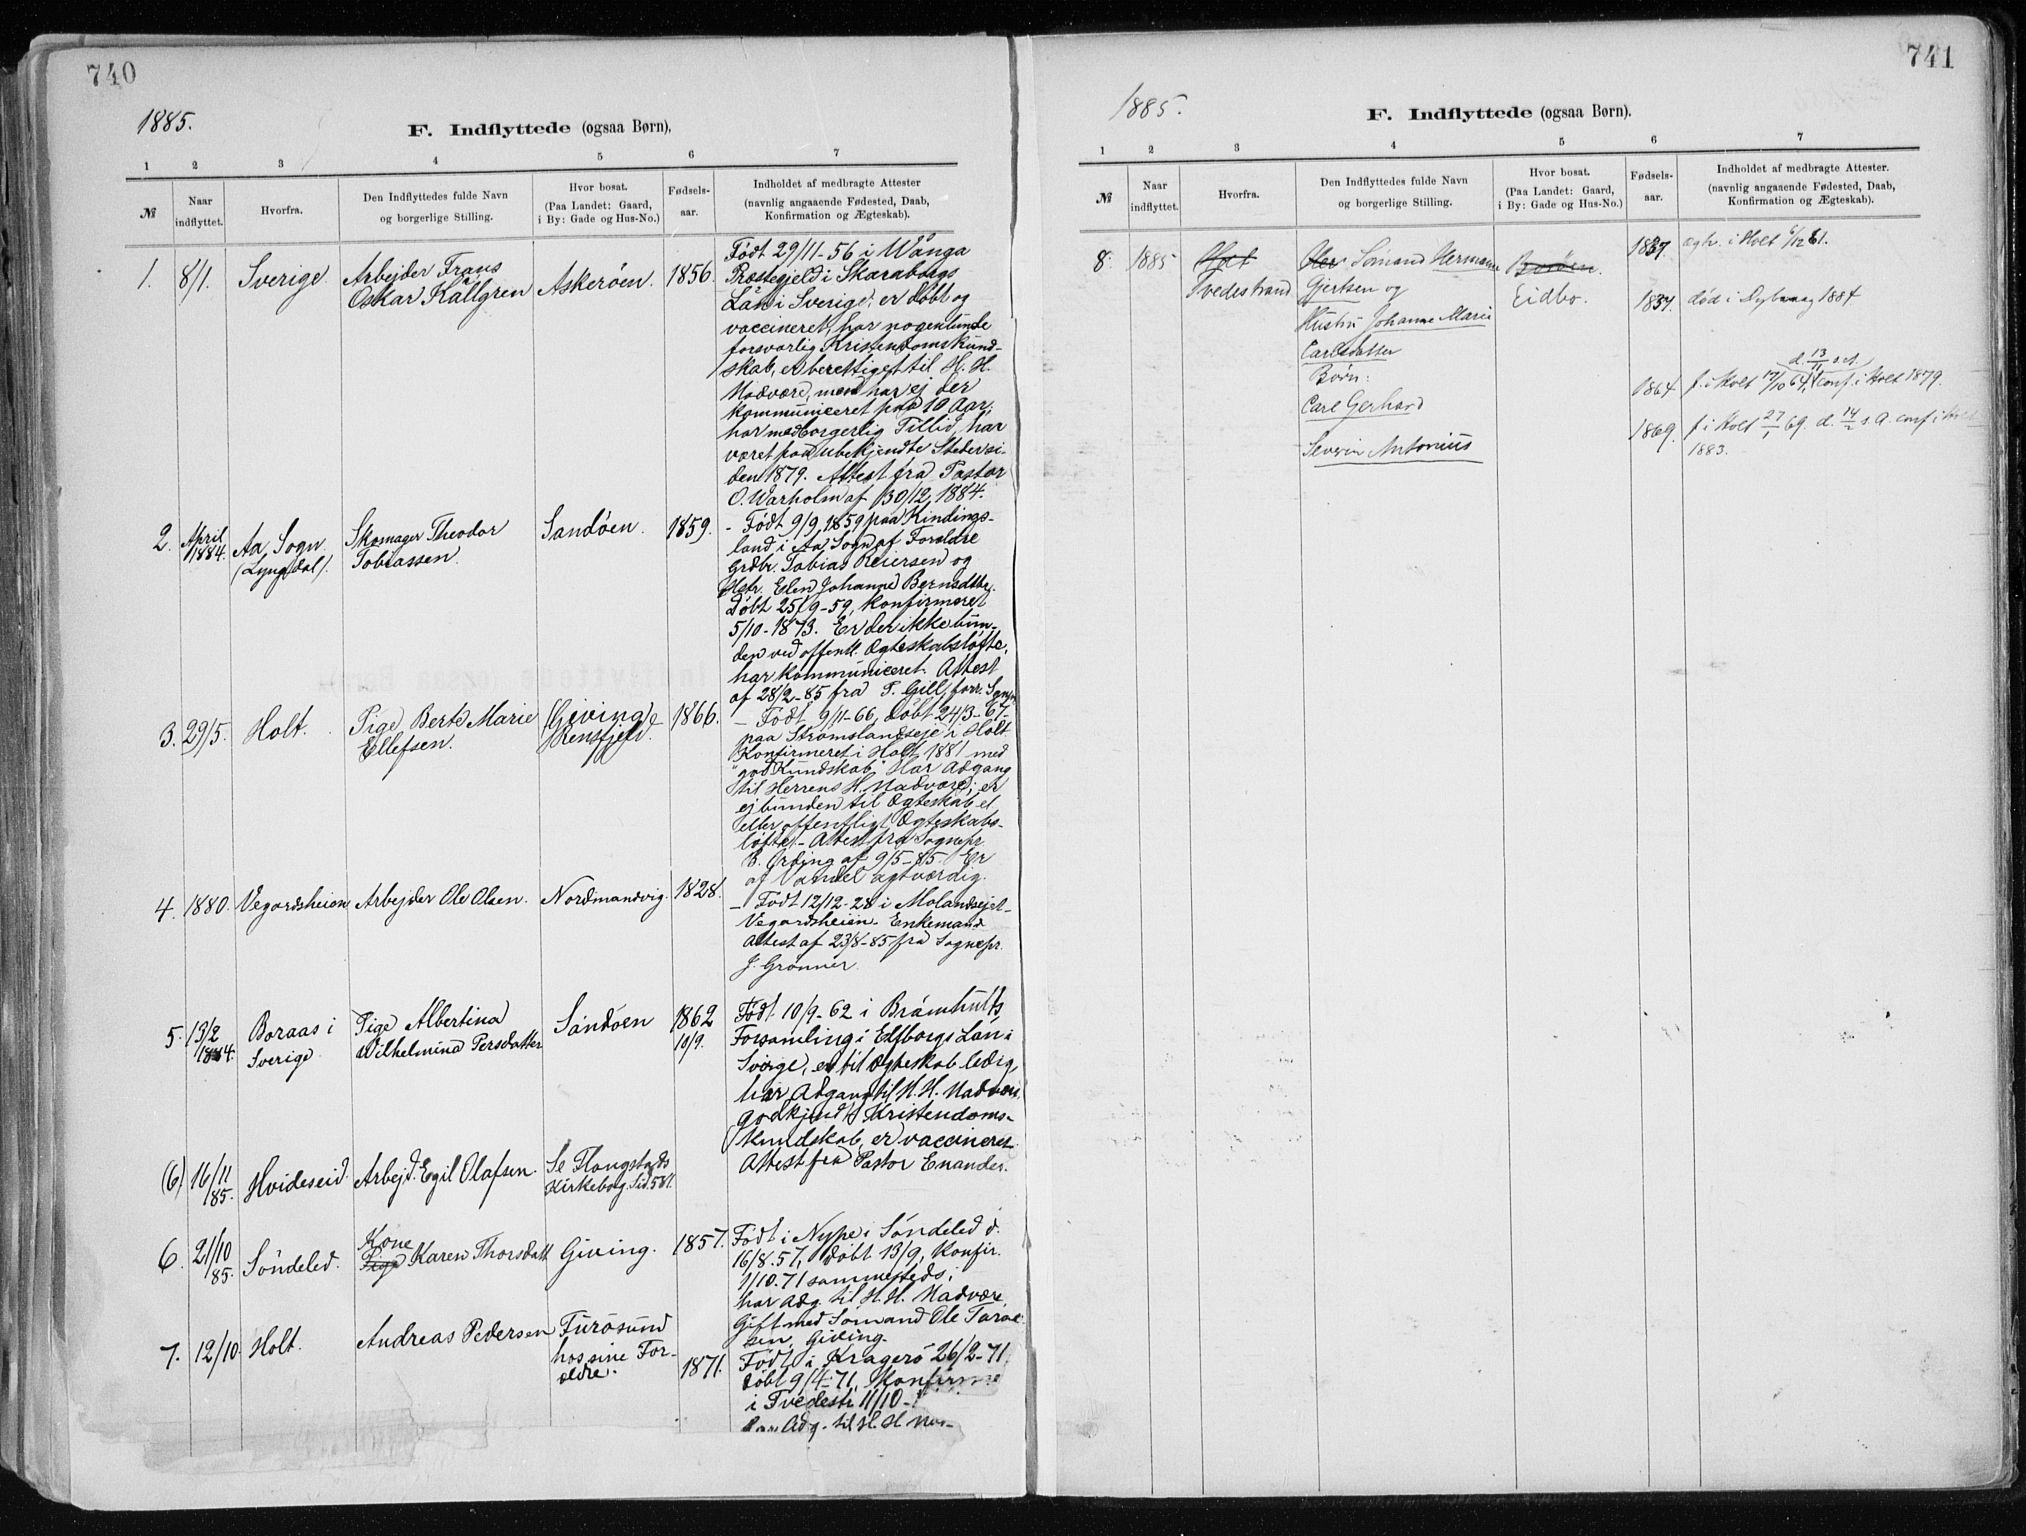 740
1885.
F. Indflyttede (ogsaa Børn),
1 2 3 4 5 6 7
№
Naar indflyttet.
Hvorfra.
Den Indflyttedes fulde Navn
og borgerlige Stilling.
Hvor bosat.
(Paa Landet: Gaard,
i By: Gade og Hus-No.)
Fødsels-
aar.
Indholdet af medbragte Attester
(navnlig angaaende Fødested, Daab,
Konfirmation og Ægteskab).
1. 8/1. Sverige. Arbejder Frans
Oskar Källgren
Askerøen. 1856.
Født 29/11-56 i Wånga
Præstegjeld i Skaraborgs
Län i Sverige; er døbt og
vaccineret, har nogenlunde
forsvarlig Kristendomskund-
skab, er berettiget til H. H.
Nadvære, men har ej der
kommuniceret paa 10 Aar;
har medborgerlig Tillid, har
været paa ubekjendte Steder si-
den 1879. Attest fra Pastor
O. Warholm af 30/12 1884.
2. April
1884. Aa Sogn
(Lyngdal).
Skomager Theodor
Tobiassen.
Sandøen. 1859.
- Født 9/9 1859 paa Kindings-
land i Aa Sogn af Forældre
Grdbr. Tobias Reiersen og
Hstr. Elen Johanne Berntsdtr.
Døbt 25/9-59, Konfirmeret
5/10-1873. Er der ikke bun-
den ved offentl. Ægteskabsløfte,
har kommuniceret. Attest
af 28/2-85 fra P. Gill,
3. 29/5. Holt. Pige Berte Marie
Ellefsen.
(Giving)
Rensfjeld. 1866.
- Født 9/11-66, døbt 24/3-67
paa Strømslandseje i Holt
Konfirmeret i Holt 1881 med
"god Kundskab" Har Adgang
til Herrens H. Nadvære; er
ej bunden til Ægteskab el
eller offentligt Ægteskabs-
løfte. - Attest fra Sognepr.
B. Ørding af 9/5-85. Er
af Vandel agtværdig.
4. 1880. Vegardsheien Arbejder Ole Olsen. Nordmandvig. 1828.
- Født 12/12-28 i Molandsejet-
Vegardsheien. Enkemand
Attest af 23/8-85 fra Sognepr.
J. Grønner.
5. 13/2
1884. Boraas i
Sverige
Pige Albertina
Wilhelmina Persdatter
Sandøen 1862
10/9.
Født 10/9-62 i Bråmhults
Forsamling i Elfborgs Län i
Sverige, er til Ægteskab ledig,
har Adgang til H. H. Nadvære
godkjendt Kristendoms-
kundskab, er vaccineret
Attest fra Pastor Enander.
(6) 16/11
85. Hvideseid. Arbejd. Egil Olafsen. Se Flangstads
Kirkebog. Sid.
6. 21/10
85. Søndeled.
Kone
Pige Karen Thorsdatt Giving. 1857.
Født i Nype i Søndeled d.
16/8.57, døbt 13/9, Konfir.
1/10.71 sammesteds;
har Adg. til H. H. Nadvære
Gift med Sømand Ole
Giving.
7. 12/10. Holt. Andreas Pedersen Furøsund
hos sine For-
ældre. 1871.
Født i Kragerø 26/2-71,
døbt 9/4-71, Konfirme
i Tvedestr. 11/10-
har Adg. til H. H.
741
1885.
F. Indflyttede (ogsaa Børn).
1 2 3 4 5 6 7
№
Naar indflyttet.
Hvorfra.
Den Indflyttedes fulde Navn
og borgerlige Stilling.
Hvor bosat.
(Paa Landet: Gaard,
i By: Gade og Hus-No.)
Fødsels-
aar.
Indholdet af medbragte Attester.
(navnlig angaaende Fødested, Daab,
Konfirmation og Ægteskab).
8. 1885
Tvedestrand
Sømand Hermann
Gjertsen og
Hustru Johanne Marie
Carlsdatter
Børn:
Carl Gerhard
Severin Antonius
Borøen.
Eidbo.
1837. ægtv. i Holt 6/12 61.
1837. død i Dybvaag 1884
1864. f. i Holt 17/10 64, d. 13/11 s.A. conf. i Holt 1879.
1869. f. i Holt 27/1 69. d. 14/2 s. A. conf. i Holt
1883.